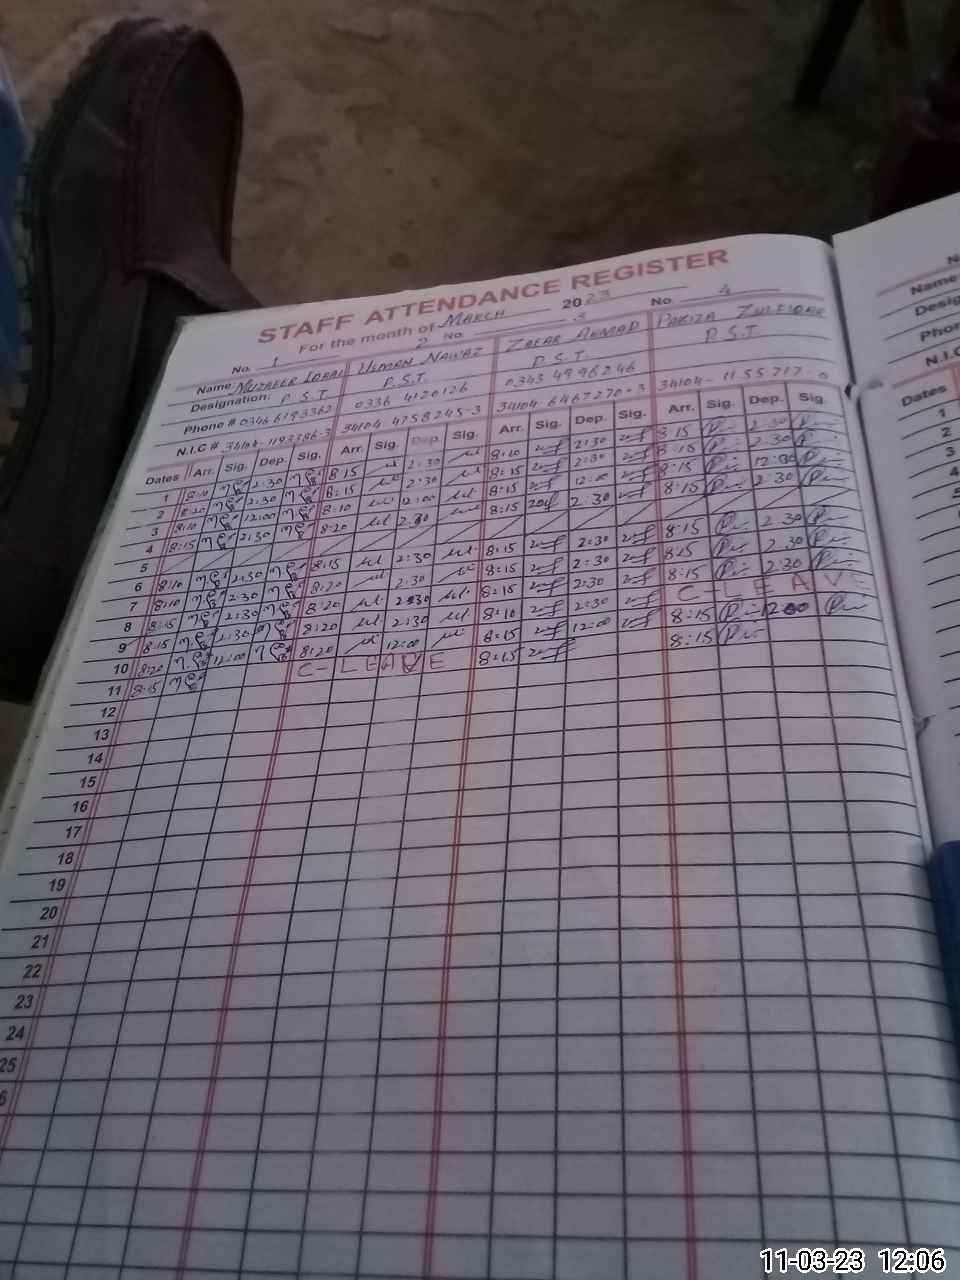 STAFF ATTENDANCE REGISTER
For the month of MARCH 2023
No. 1 2 No. 3 No. 4
Name: IQBAL USMAN NAWAZ ZAFAR AHMAD PAKIZA ZULFIQAR
Designation: P.S.T P.S.T. P.S.T. P.S.T.
Phone # 0346 6193362 0336 4120126 0343 4996246
N.I.C # 34104-1193386-3 34104 4758245-3 34104-6467270-3 34104-1155717-0
Dates Arr. Sig. Dep. Sig. Arr. Sig. Dep. Sig. Arr. Sig. Dep. Sig. Arr. Sig. Dep. Sig.
1 8:10 2:30 8:15 2:30 8:10 2:30 8:15 2:30
2 8:20 2:30 8:15 2:30 8:15 2:30 8:15 2:30
3 8:10 12:00 8:10 12:00 8:15 12:00 8:15 12:30
4 8:15 2:30 8:20 2:30 8:15 2:30 8:15 2:30
5
6 8:10 2:30 8:15 2:30 8:15 2:30 8:15 2:30
7 8:10 2:30 8:20 2:30 8:15 2:30 8:15 2:30
8 8:15 2:30 8:20 2:30 8:15 2:30 8:15 2:30
9 8:15 2:30 8:20 2:30 8:10 2:30 C-LEAVE
10 8:20 12:00 8:20 12:00 8:15 12:00 8:15 1200
11 8:15 C-LEAVE 8:15 8:15
12
13
14
15
16
17
18
19
20
21
22
23
24
25
6
Name
Desig
Phor
N.I.C
Dates
1
2
3
4
11-03-23 12:06